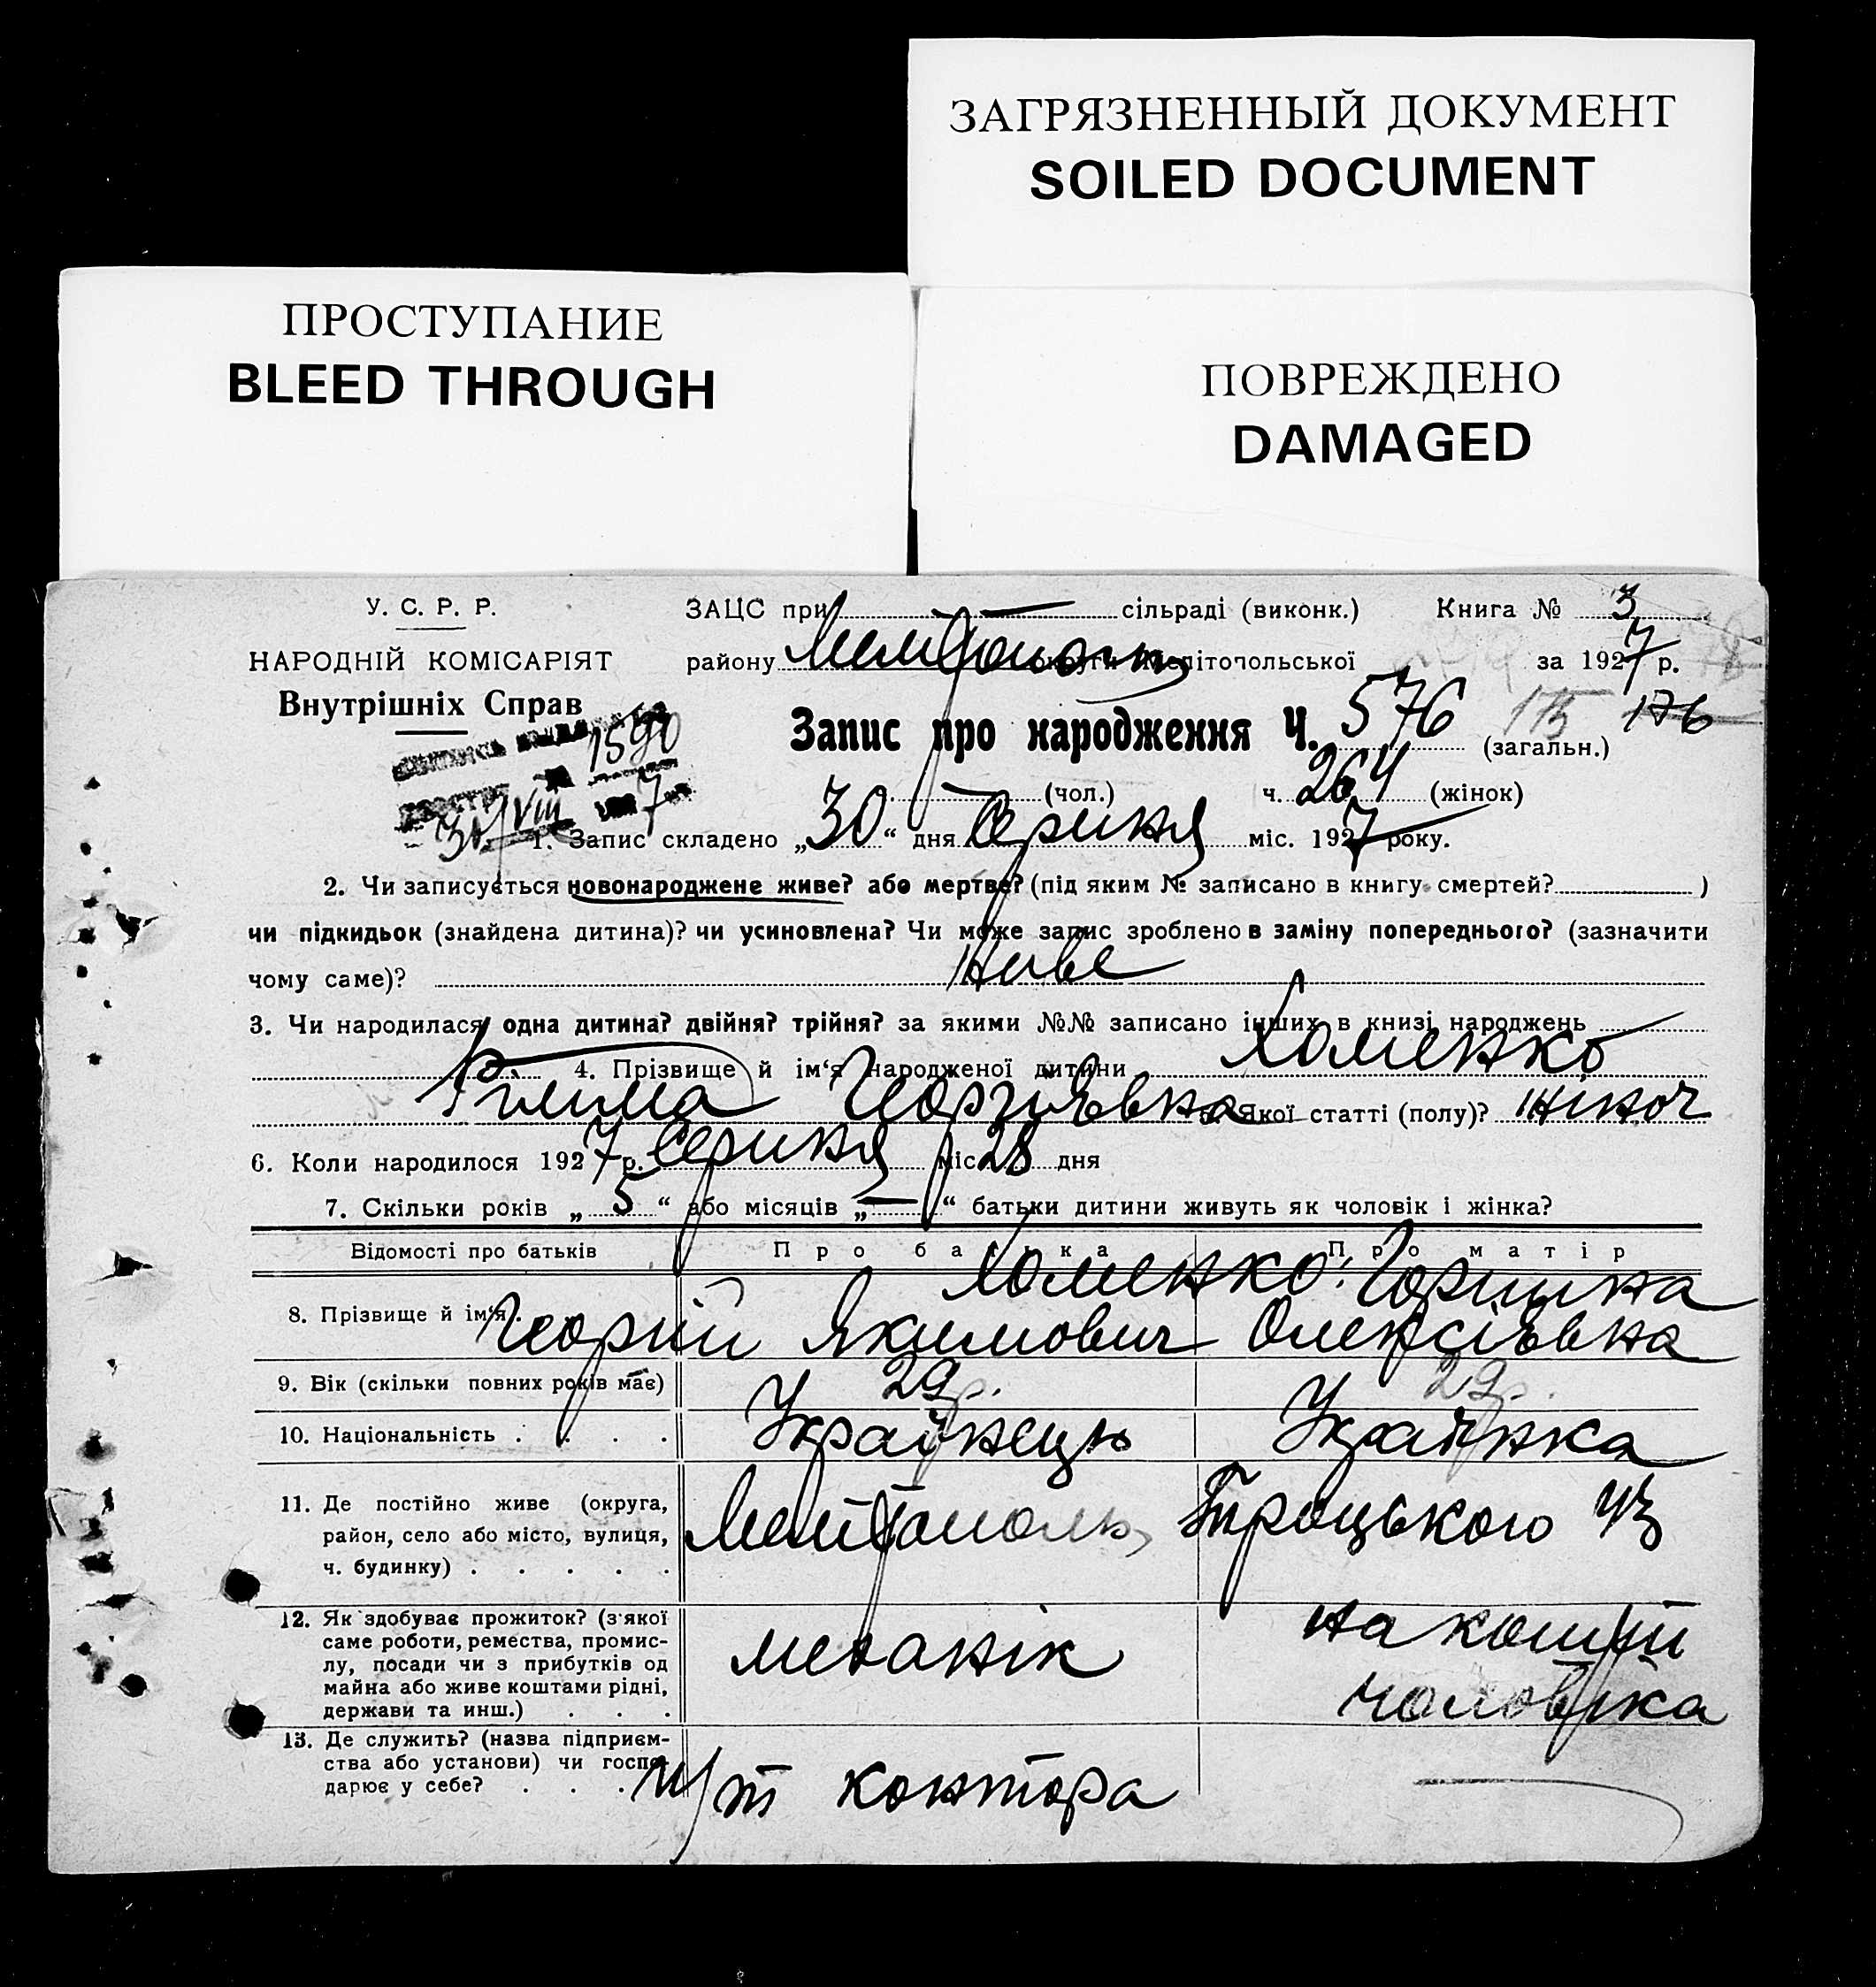 ЗАГРЯЗНЕННЫЙ ДОКУМЕНТ
SOILED DOCUMENT
ПРОСТУПАНИЕ
BLEED THROUGH
ПОВРЕЖДЕНО
DAMAGED
У. С. Р. Р.
НАРОДНІЙ КОМІСАРІЯТ
Внутрішніх Справ
1590
30/VIII 7
ЗАЦС при — сільраді (виконк.) Книга № 3
району округи Мелітопольської за 1927 р.
Запис про народження Ч. 576 (загальн.) 175 176
— (чол.) ч. 264 (жінок)
1. Запис складено „30“ дня Серпня міс. 1927 року.
2. Чи записується новонароджене живе? або мертве? (під яким № записано в книгу смертей? )
чи підкидьок (знайдена дитина)? чи усиновлена? Чи може запис зроблено в заміну попереднього? (зазначити
чому саме)? Живе
3. Чи народилася одна дитина? двійня? трійня? за якими №№ записано інших в книзі народжень —
4. Прізвище й ім‘я народженої дитини Хоменко
Римма Георгіевна 5. Якої статті (полу)? жіноч
6. Коли народилося 1927 р. Серпня міс. 28 дня
7. Скільки років „5“ або місяців „—“ батьки дитини живуть як чоловік і жінка?
Відомості про батьків Про батька Про матір
8. Прізвище й ім‘я. Хоменко: Горпина
Георгій Якимович Олексіевна
9. Вік (скільки повних років має) 29 р. 29 р.
10. Національність . . . . Українець Українка
11. Де постійно живе (округа,
район, село або місто, вулиця,
ч. будинку) . . . . . Мелітополь, Троцького 43
12. Як здобуває прожиток? (з якої
саме роботи, ремества, промис-
лу, посади чи з прибутків од
майна або живе коштами рідні,
держави та инш.) . . . механік на кошти
чоловіка
13. Де служить? (назва підприєм-
ства або установи) чи госпо-
дарює у себе? . . . п/т контора —